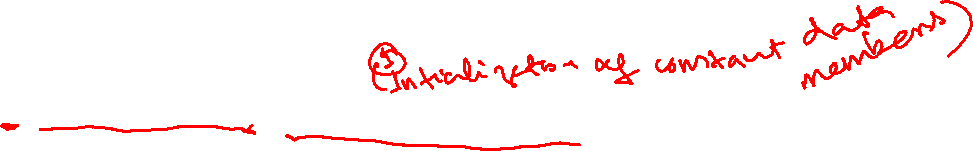 ⑤
(Intialization of constant data
members)